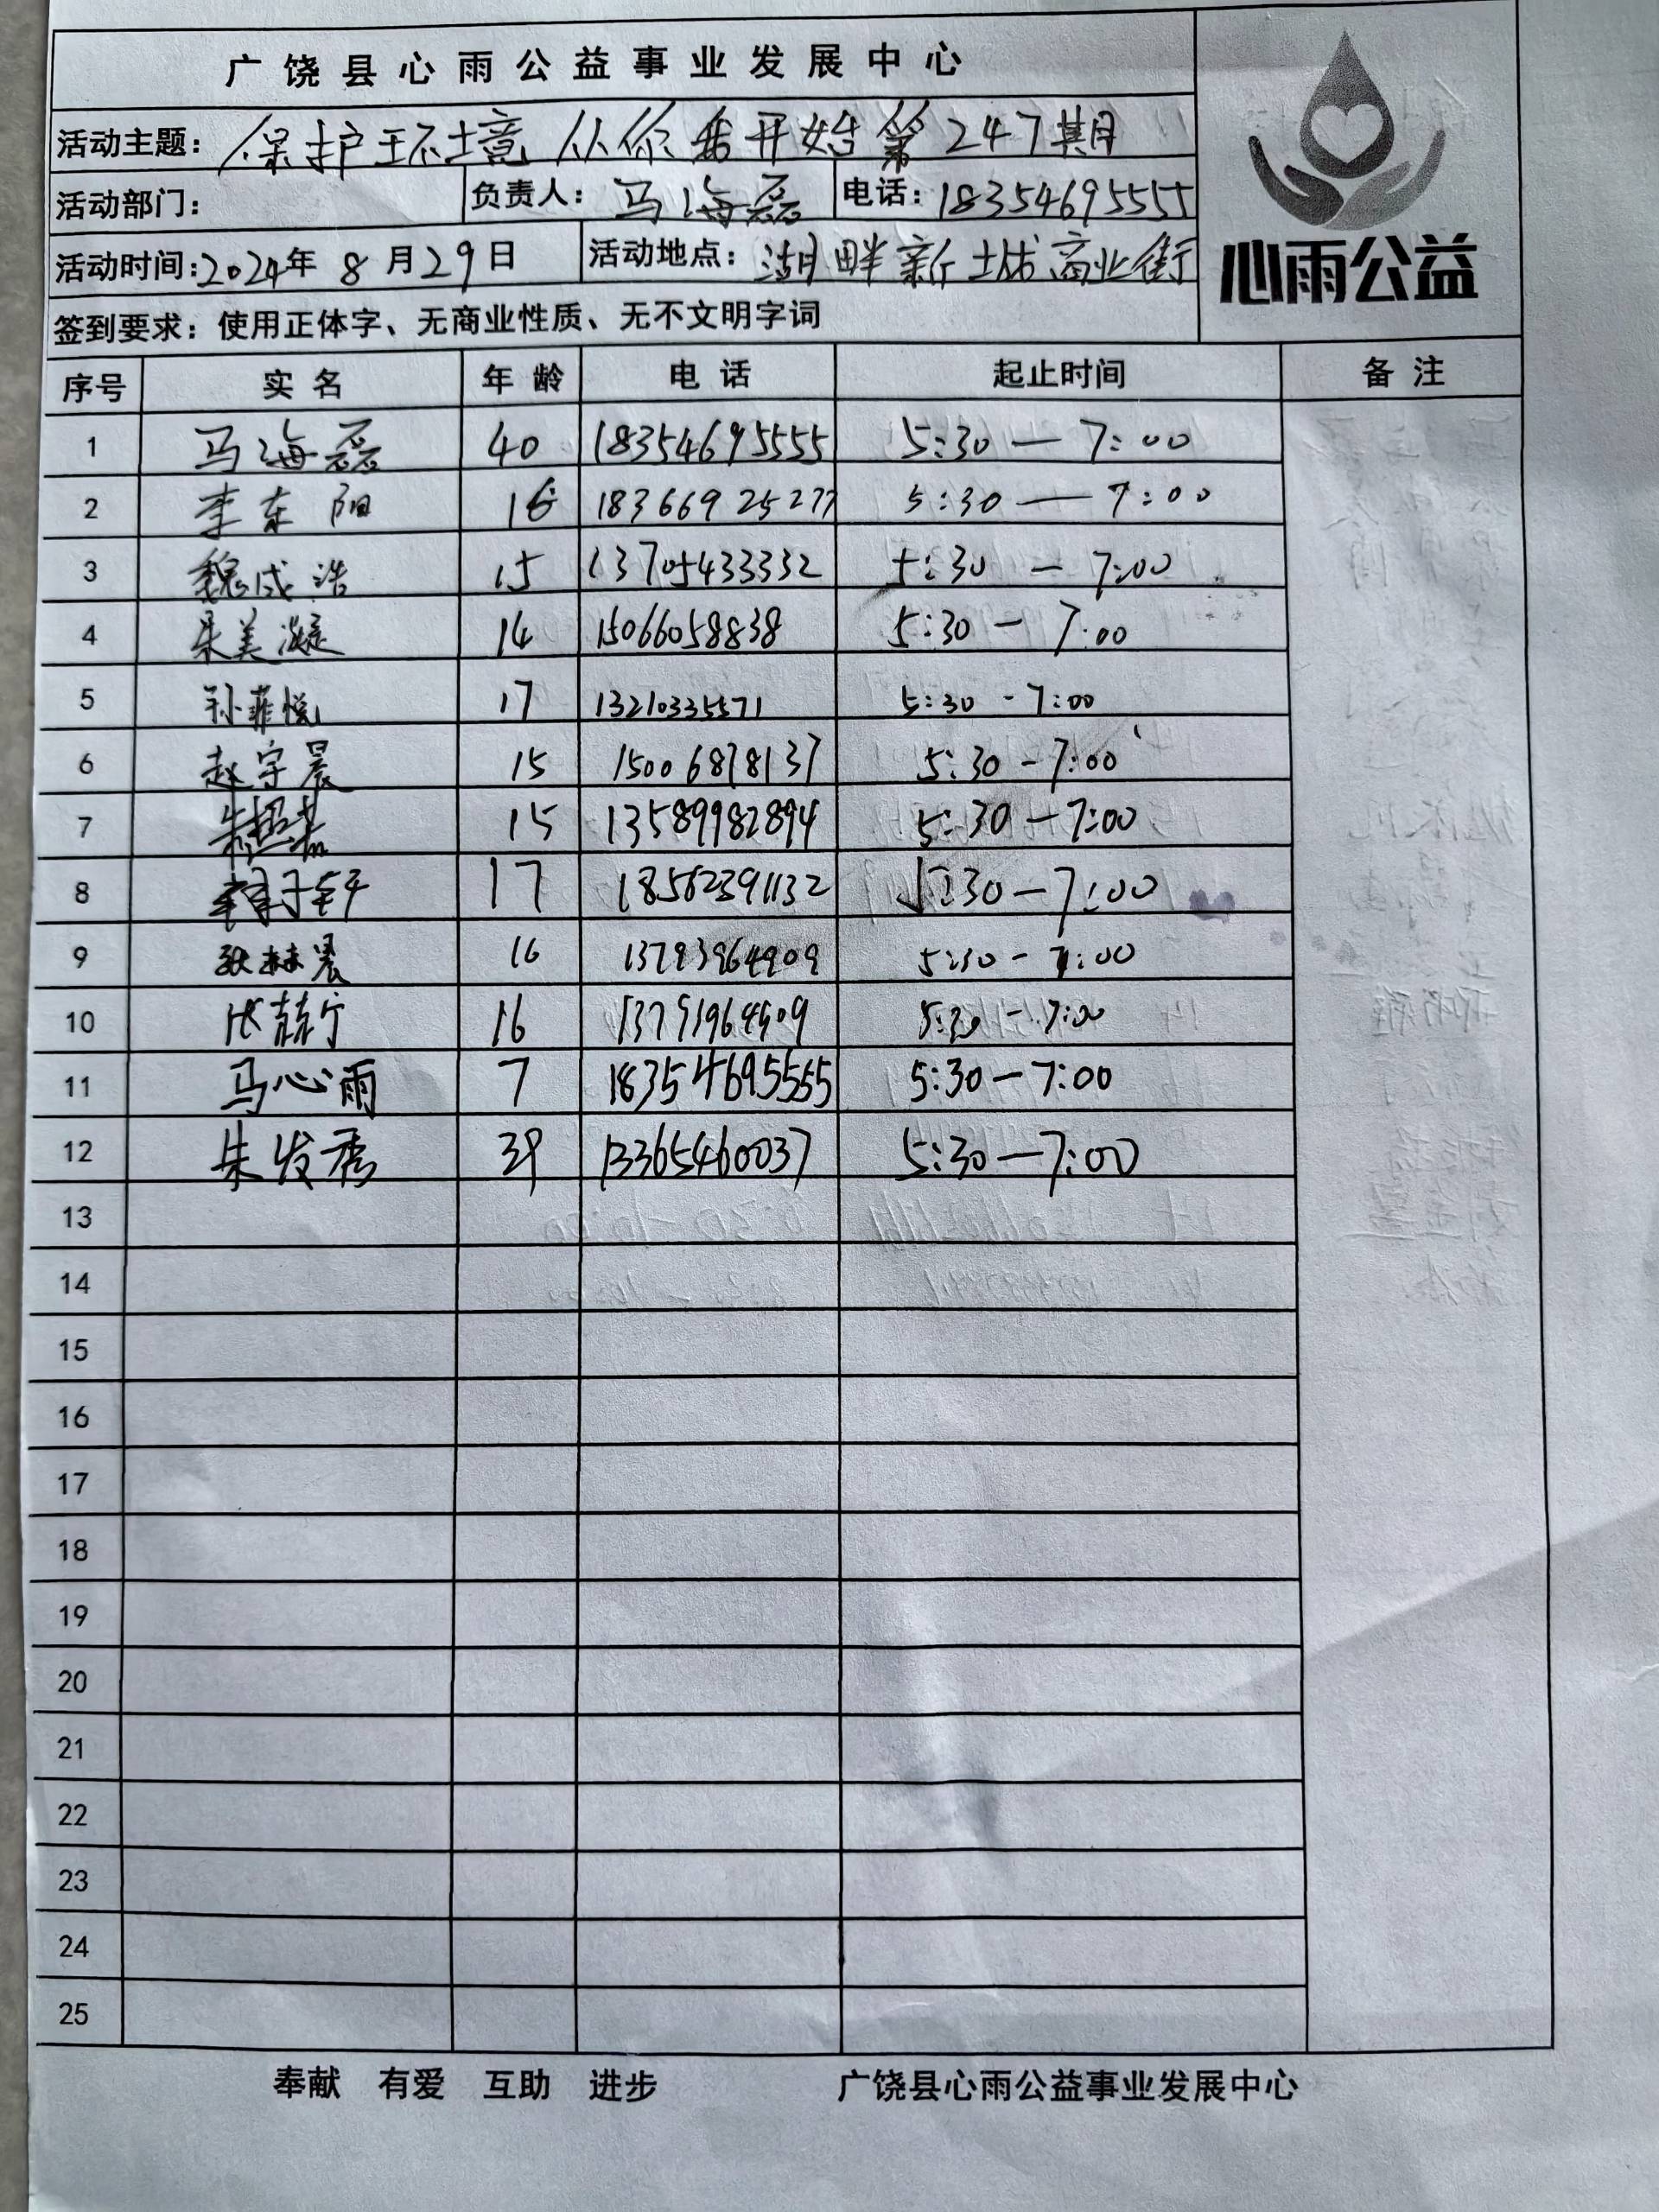 广饶县心雨公益事业发展中心
活动主题: 保护环境 从你我开始 第247期
活动部门: 负责人: 马海磊 电话: 18354695555
活动时间:2024年 8月29日 活动地点: 湖畔新城商业街
心雨公益
签到要求: 使用正体字、无商业性质、无不文明字词
序号 实名 年龄 电话 起止时间 备注
1 马海磊 40 18354695555 5:30 — 7:00
2 李东阳 16 18366925277 5:30 — 7:00
3 魏成浩 15 13705433332 5:30 — 7:00
4 朱美凝 14 15066058838 5:30 — 7:00
5 孙菲悦 17 13210335571 5:30 - 7:00
6 赵宇晨 15 15006878137 5:30 - 7:00
7 15 13589982894 5:30 — 7:00
8 17 18562391132 5:30 — 7:00
9 16 13793964909 5:30 - 7:00
10 16 5:30 - 7:00
11 马心雨 7 18354695555 5:30 — 7:00
12 朱发秀 39 13365460037 5:30 — 7:00
13
14
15
16
17
18
19
20
21
22
23
24
25
奉献 有爱 互助 进步 广饶县心雨公益事业发展中心